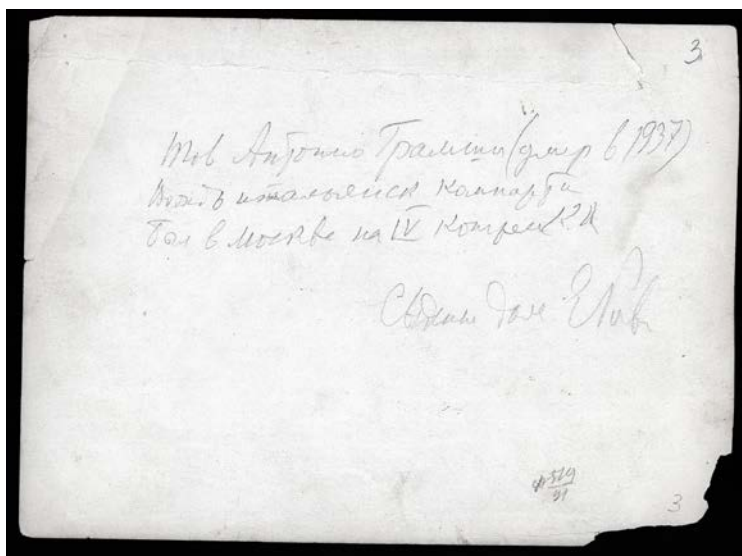 3
Тов Антонио Грамши (умер в 1937)
Вождь итальянск компарти
был в Москве на IV Конгресс К И
дал
519
91
3